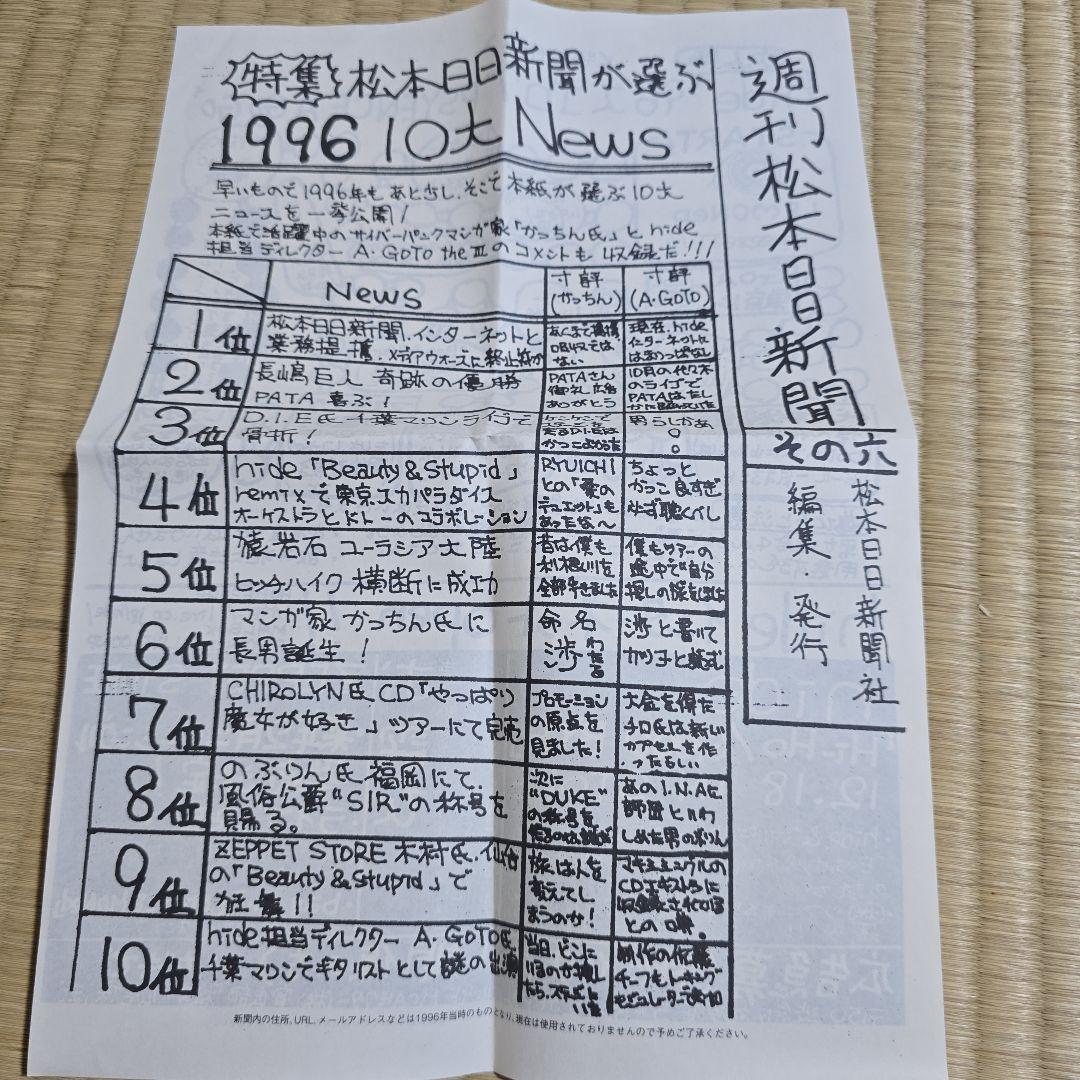 週刊松本日日新聞
その六
松本日日新聞社
編集・発行
特集 松本日日新聞が選ぶ
1996 10大 News
早いもので1996年もあと少し.そこで本紙が選ぶ10大
ニュースを一挙公開!
本紙で活躍中のサイバーパンクマンガ家「かっちん氏」とhide
担当ディレクター A・GOTO the Ⅲのコメントも収録だ!!!
News
寸評
(かっちん)
寸評
(A.GOTO)
1位
松本日日新聞.インターネットと
業務提携.メディアウォーズに終止符か
あくまで提携.
吸収では
ない
現在.hide
インターネットに
はまりっぱなし
2位
長嶋巨人 奇跡の優勝
PATA 喜ぶ!
PATAさん
御礼広告
ありがとう
10月の代々木
のライブで
PATAはたし
かに
3位
D.I.E氏千葉マリンライブで
骨折!
男らしかあ
。
4位
hide「Beauty&Stupid」
remixで東京スカパラダイス
オーケストラとドトーのコラボレーション
RYUICHI
との「愛の
デュエット」も
あったな〜
ちょっと
かっこ良すぎ
必ず聴くべし
5位
猿岩石 ユーラシア大陸
ヒッチハイク 横断に成功
昔は僕も
利根川を
全部歩きました
僕もツアーの
途中で"自分
探しの旅をしました
6位
マンガ家 かっちん氏に
長男誕生!
命名
渉 わたる
渉と書いて
カツ子と読む
7位
CHIROLYN氏 CD「やっぱり
魔女が好き」ツアーにて完売
プロモーション
の原点を
見ました!
大金を得た
チロ氏は新しい
カプセルを作
ったらしい
8位
のぶりん氏 福岡にて
風俗公爵"SIR"の称号を
賜る。
次に
"DUKE"
の称号を
あのI.N.Aに
師匠といわ
しめた男のぶりん
9位
ZEPPET STORE 木村氏.仙台
の「Beauty&Stupid」で
狂舞!!
旅は人を
変えてし
まうのか!
CDエキストラに
収録
との噂。
10位
hide担当ディレクター A.GOTO氏
千葉マリンでギタリストとして謎の出演
当日.どこに
いるのか探し
たら.
新聞内の住所、URL、メールアドレスなどは1996年当時のものとなり、現在は使用されておりませんので予めご了承ください。